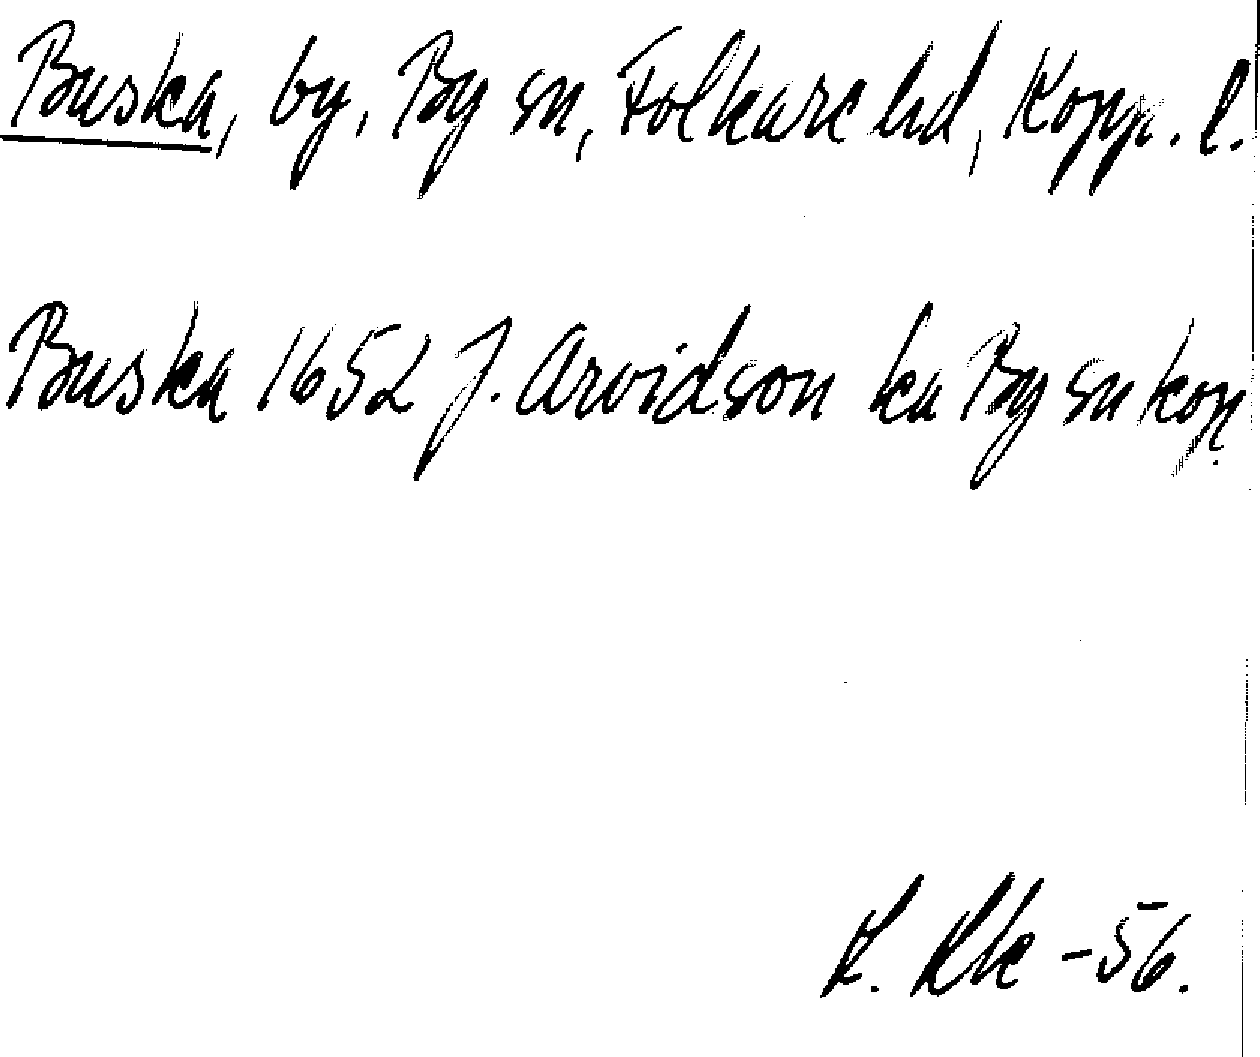 Buska, by, By sn, Folkare hd, Kopp. l.
Buska 1652 J. Arvidson ka By sn kop.
-56.